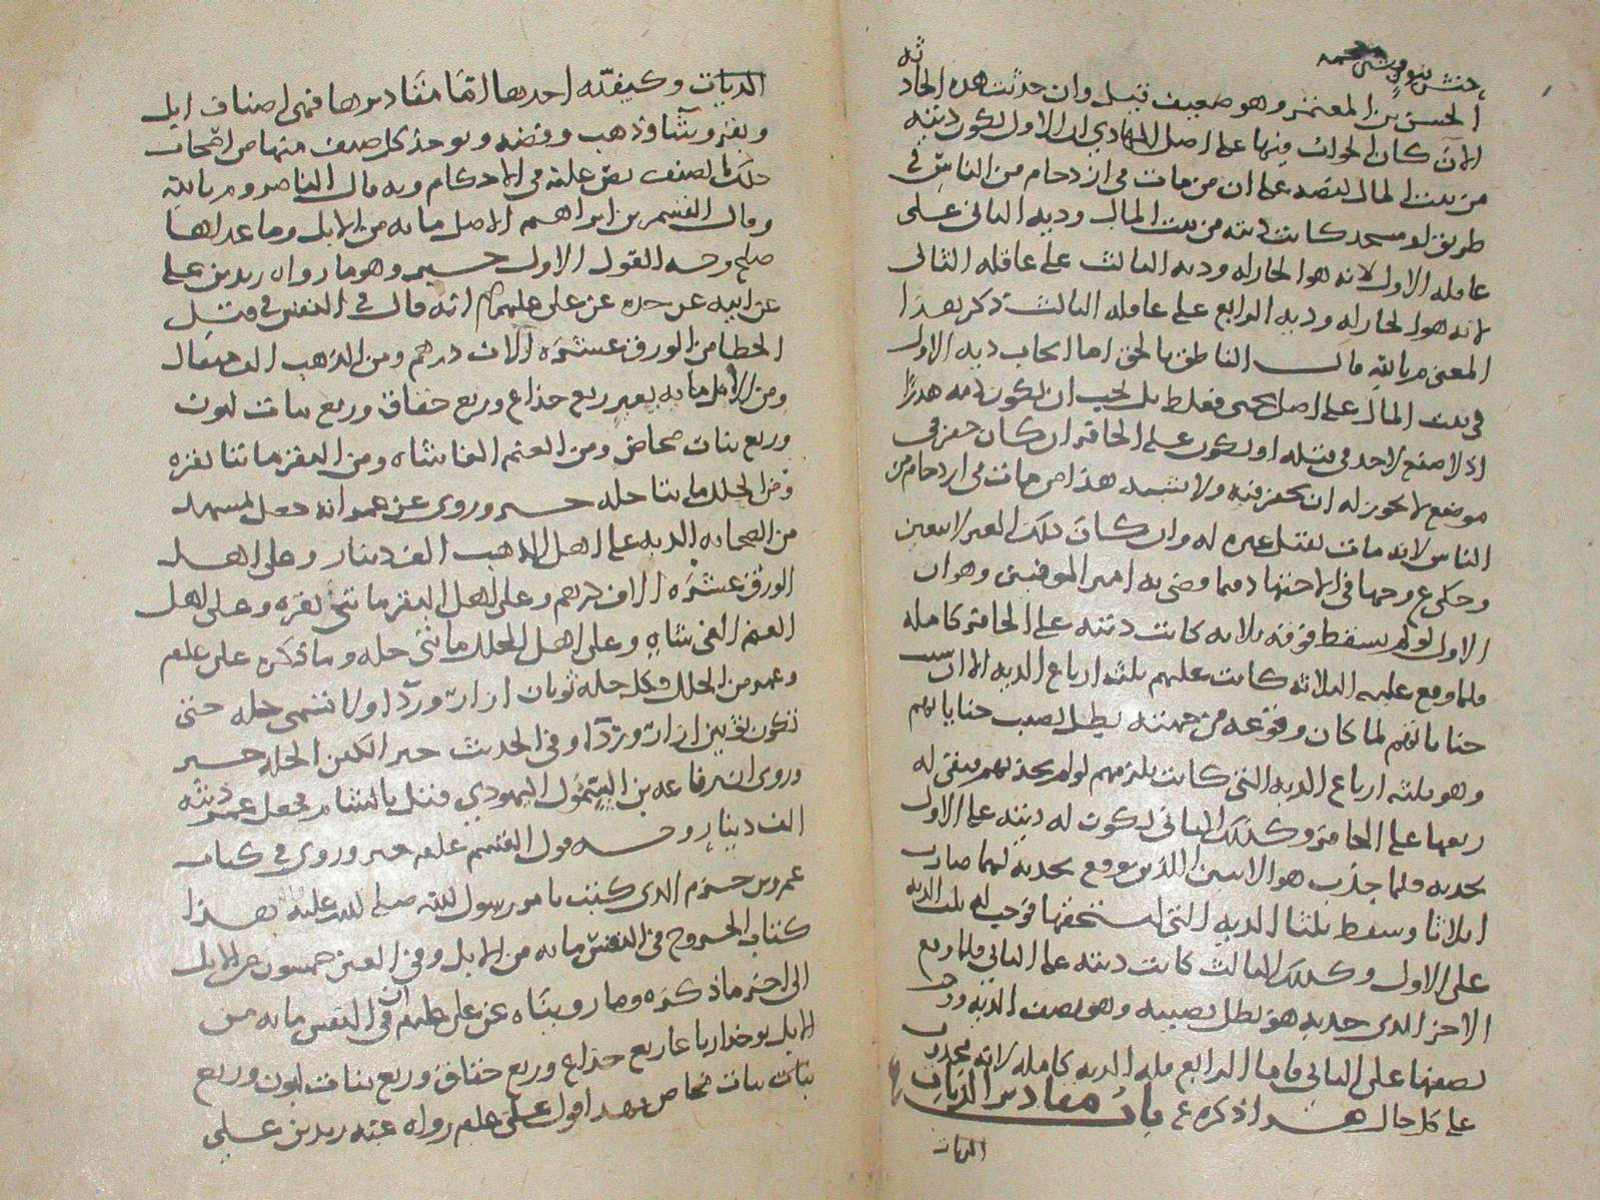 الحسن بن المعتمر وهو ضعيف قيل وان حدثت هده الحادثه
الان كان الجواب فيها على اصل الهادي ان الاول تكون ديته
من بيت المال لنصه على ان من مات في ازدحام من الناس في
طريق او مسجد كانت ديته من بيت المال وديه الثاني على
عاقله الاول لانه هو الجار له وديه الثالث على عاقله الثاني
لانه هو الجار له وديه الرابع على عاقله الثالث ذكر هذا
المعنى م بالله قال الناطق بالحق اما ايجاب ديه الاول
في بيت المال على اصل يحيى فغلط بل يجب ان تكون ديته هدرا
اذ لا صنع لاحد في قتله او تكون على الحافر ان كان حفر في
موضع لا يجوز له ان يحفر فيه ولا يشبه هذا من مات في ازدحام من
الناس لانه مات بقتل غيره له وان كان ذلك الغير لا يتعين
وحكى ع وجها في الاحتهاد فيما قضى به امير المومنين وهو ان
الاول لو لم يسقط فوقه ثلاثه كانت ديته على الحافر كامله
فلما وقع عليه الثلاثه كانت عليهم ثلثه ارباع الديه الا ان سبب
جناياتهم لما كان وقوعه من جهته بطل نصيب جناياتهم
وهو ثلثه ارباع الديه التي كانت تلزمهم لو لم يجذبهم فبقي له
ربعها على الحافر وكذلك الثاني تكون له ديته على الاول
بجذبه فلما جذب هو الاثنين اللذين وقع بجذبه لهما صارت
اثلاثا وسقط ثلثا الديه التي يستحقها فوجب له ثلث الديه
على الاول وكذلك الثالث كانت ديته على الثاني فلما وقع
الاخر الذي جذبه هو بطل نصيبه وهو نصف الديه ووجب
نصفها على الثاني فاما الرابع فله الديه كامله لانه مجذوب
على كل حال هذا ذكره ع باب مقادير الديات
الديات
الديات وكيفيته اخذها اما مقاديرها فهي اصناف ابل
وبقر وشاء وذهب وفضه ويوخذ كل صنف منها من اصحاب
ذلك الصنف نص عليه في الاحكام وبه قال الناصر وم بالله
وقال القسم بن ابراهيم الاصل مايه من الابل وما عداها
صلح وجه القول الاول خبر وهو ما رواه زيد بن علي
عن ابيه عن جده عن علي عليهم انه قال في النفس في قتل
الخطا من الورق عشره الاف درهم ومن الذهب الف مثقال
ومن الابل مايه بعير ربع جذاع وربع حقاق وربع بنات لبون
وربع بنات مخاض ومن الغنم الفا شاه ومن البقر مائتا بقره
ومن الحلل مائتا حله خبر وروي عن عمر انه جعل بمشهد
من الصحابه الديه على اهل الذهب الف دينار وعلى اهل
الورق عشره الاف درهم وعلى اهل البقر مائتي بقره وعلى اهل
الغنم الفي شاه وعلى اهل الحلل مائتي حله وما ذكره علي علم
وعمر من الحلل فكل حله ثوبان ازار وردا ولا تسمى حله حتى
تكون ثوبين ازار وردا وفي الحديث خير الكفن الحله خبر
وروي ان رفاعه بن السموال اليهودي قتل بالشام فجعل عمر ديته
الف دينار وجه قول القسم علم خبر وروي في كتاب
عمرو بن حزم الذي كتب بامر رسول الله صلى الله عليه هذا
كتاب الجروح في النفس مايه من الابل وفي العين خمسون من الابل
الى اخر ما ذكره وما روينا عن علي علم ان في النفس مايه من
الابل يوخذ ارباعا ربع جذاع وربع حقاق وربع بنات لبون وربع
بنات مخاض هذا قول علي علم رواه عنه زيد بن علي